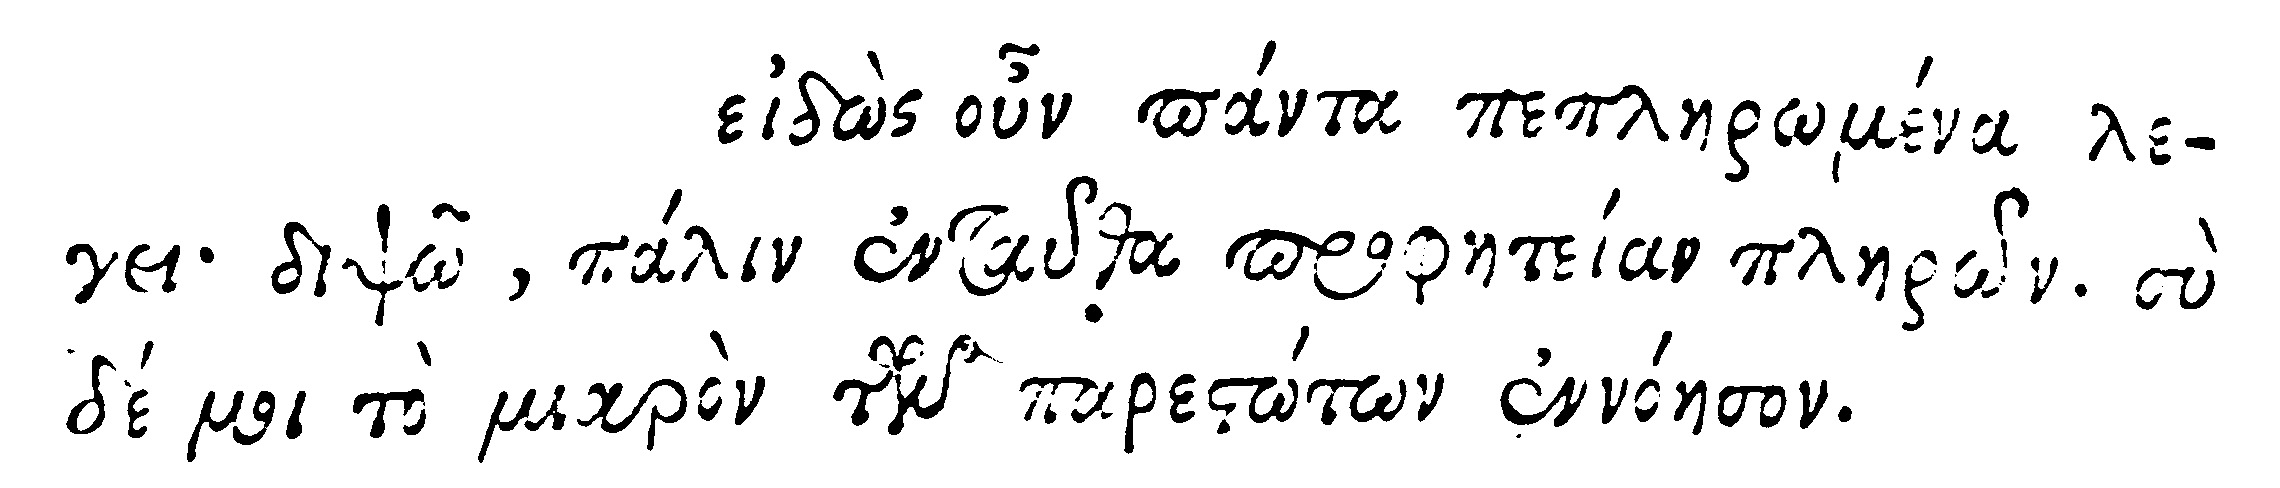 εἰδὼς οὖν πάντα πεπληρωμένα λέ-
γει· διψῶ, πάλιν ἐνταῦθα προφητείαν πληρῶν. σὺ
δέ μοι τὸ μιαρὸν τῶν παρεστώτων ἐννόησον.